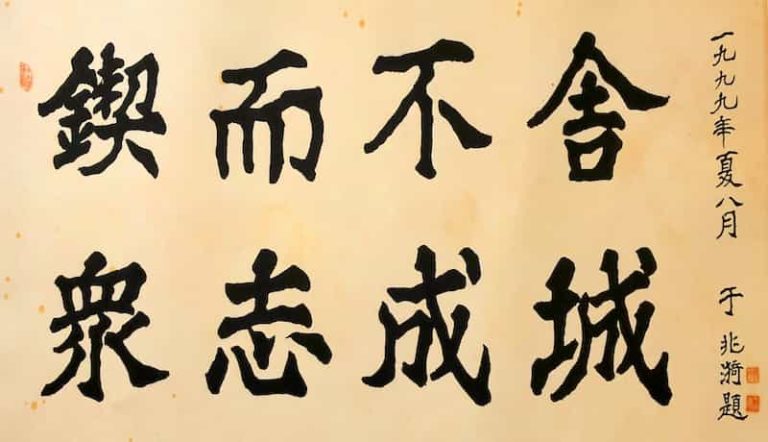 鍥而不舍
眾志成城
一九九九年夏八月 于兆漪題